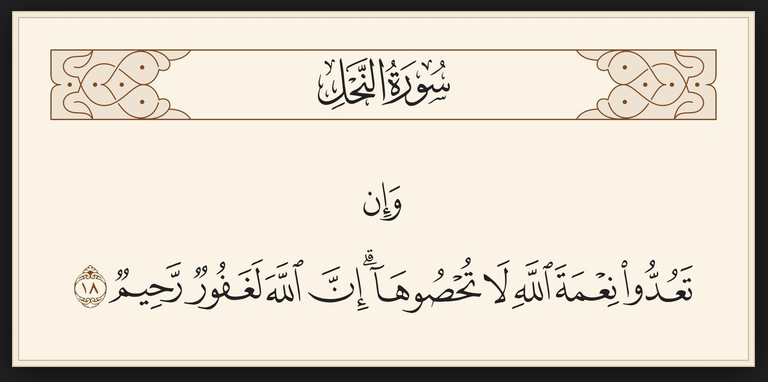 سُورَةُ النَّحْلِ
وَإِن
تَعُدُّوا۟ نِعْمَةَ ٱللَّهِ لَا تُحْصُوهَآ ۗ إِنَّ ٱللَّهَ لَغَفُورٌ رَّحِيمٌ ١٨